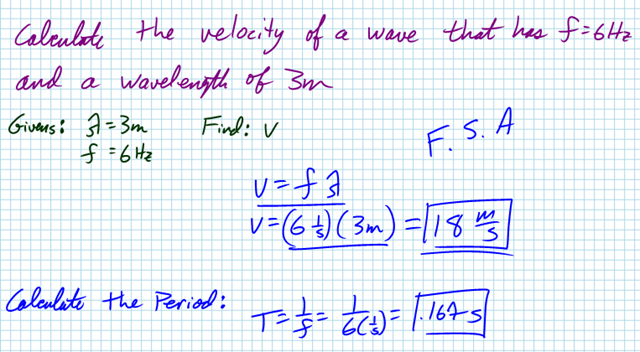 Calculate the velocity of a wave that has f=6Hz
and a wavelength of 3m
Givens: λ=3m Find: V
f=6Hz
F.S.A
V=fλ
V=(6 1/s)(3m)=18 m/s
Calculate the Period: T=1/f=1/6(1/s)=.167s